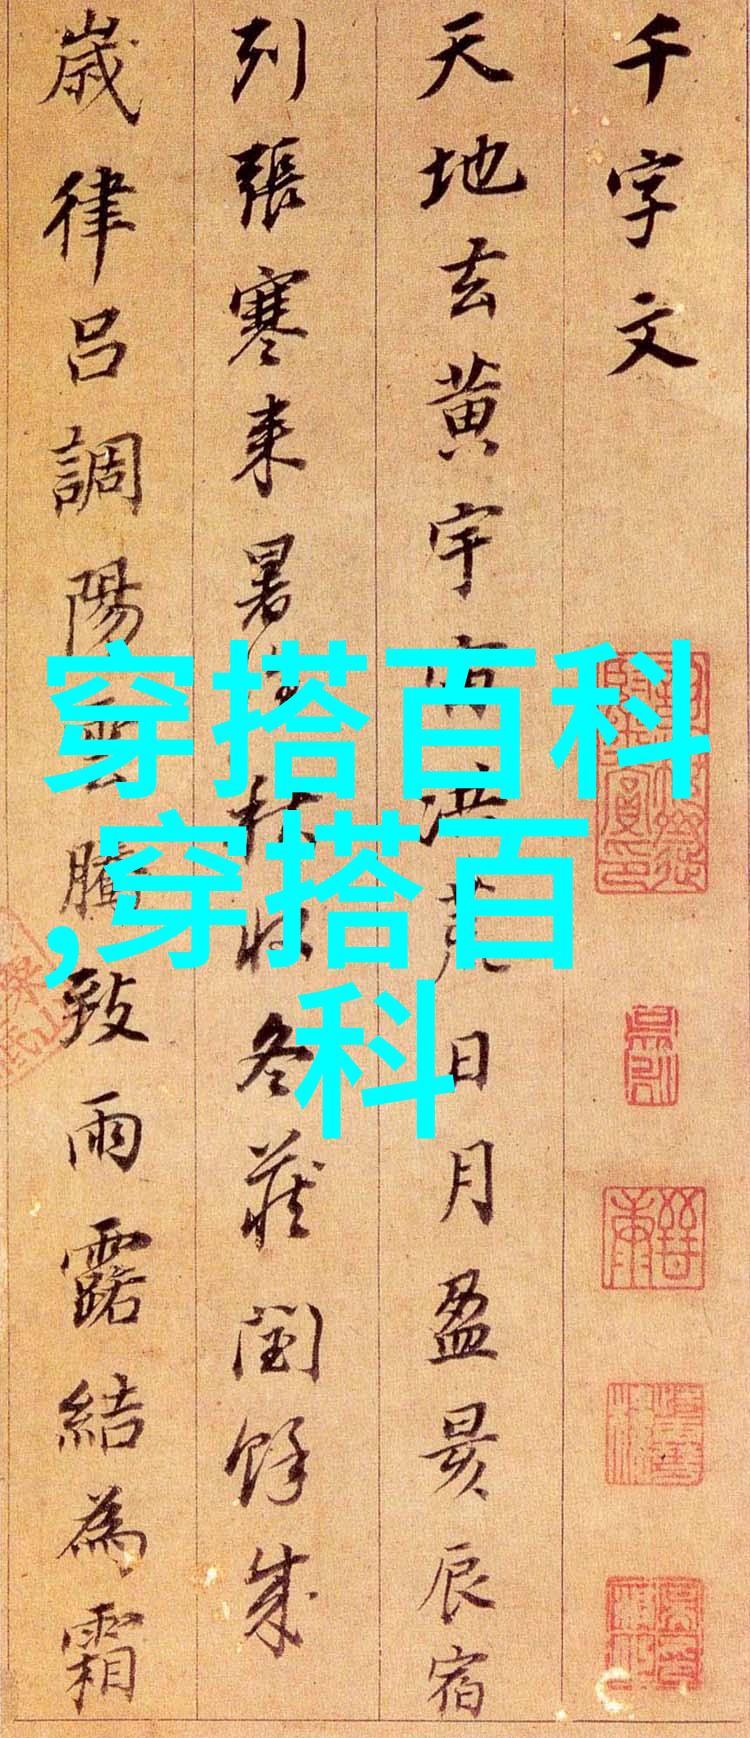 千字文
天地玄黄宇宙洪荒日月盈昃辰宿
列張寒来暑往秋收冬蔵閏餘成
歲律吕調陽雲騰致雨露結為霜
穿搭百科
,穿搭百
科